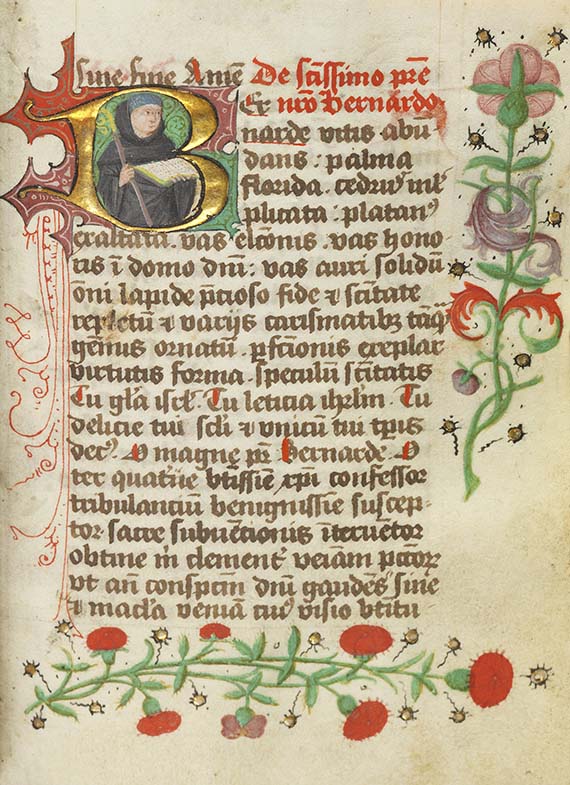 sine fine Amē De scissimo pre
Er nro Bernardo
narde vitis abū
dans : palma
florida . cedrus ml
plicata : platan⁹
exaltata . vas elcōnis . vas hono
ris ī domo dnī : vas auri solidū
om̄i lapide p̄cioso fide ⁊ sc̄itate
repletū ⁊ varijs carismatibꝫ
gēmis ornatū . p̄fcionis exēplar
virtutis forma . speculū sc̄itatis
Tu glā iscl . Tu leticia ihrlm . Tu
delicie tui scli ⁊ vnicū tui tp̄is
dec⁹ . O magne pr̄ Bernarde . O
ter quaterqꝫ btīssie xp̄i confessor
tribulanciū benignissie suscep
tor . sacre
obtine in clement veniam pctor
vt an̄ conspectū dnī gaudēs sine
⁊ mac̄la veniā tu⁹ visio btītu